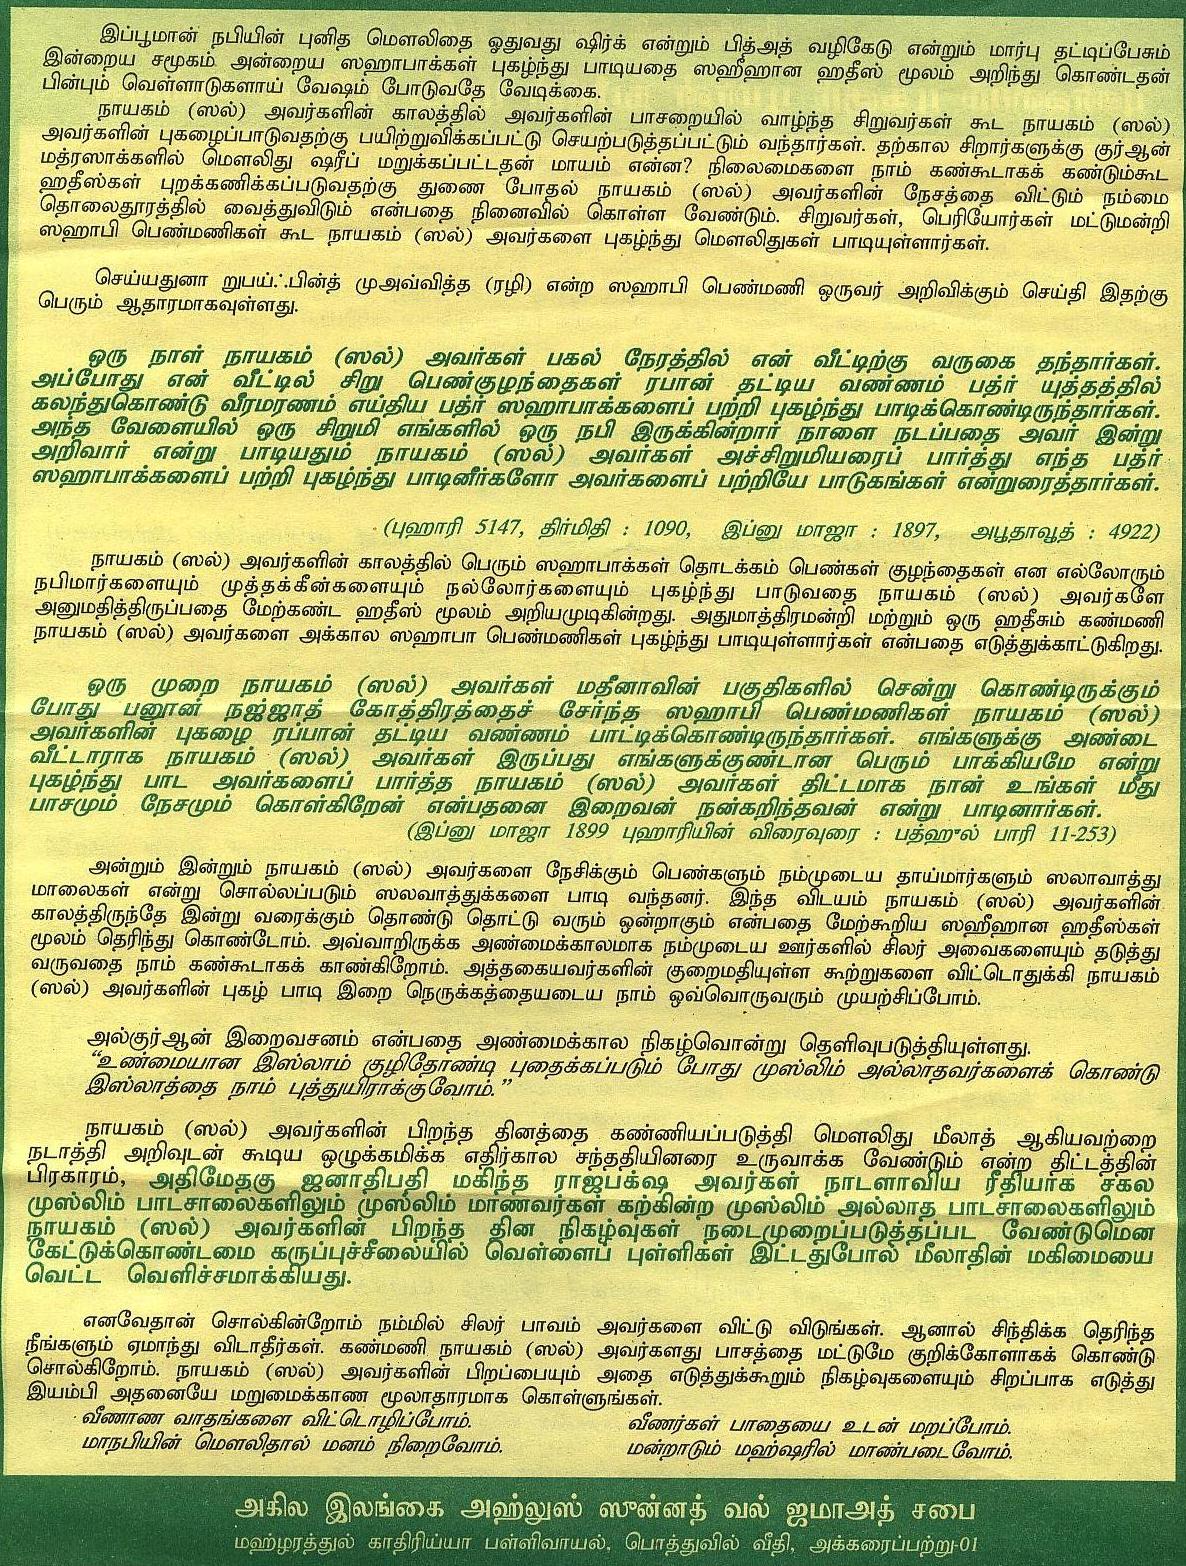 இப்பூமான் நபியின் புனித மௌலிதை ஓதுவது ஷிர்க் என்றும் பித்அத் வழிகேடு என்றும் மார்பு தட்டிப்பேசும்
இன்றைய சமூகம் அன்றைய ஸஹாபாக்கள் புகழ்ந்து பாடியதை ஸஹீஹான ஹதீஸ் மூலம் அறிந்து கொண்டதன்
பின்பும் வெள்ளாடுகளாய் வேஷம் போடுவதே வேடிக்கை.
நாயகம் (ஸல்) அவர்களின் காலத்தில் அவர்களின் பாசறையில் வாழ்ந்த சிறுவர்கள் கூட நாயகம் (ஸல்)
அவர்களின் புகழைப்பாடுவதற்கு பயிற்றுவிக்கப்பட்டு செயற்படுத்தப்பட்டும் வந்தார்கள். தற்கால சிறார்களுக்கு குர்ஆன்
மத்ரஸாக்களில் மௌலிது ஷரீப் மறுக்கப்பட்டதன் மாயம் என்ன? நிலைமைகளை நாம் கண்கூடாகக் கண்டும்கூட
ஹதீஸ்கள் புறக்கணிக்கப்படுவதற்கு துணை போதல் நாயகம் (ஸல்) அவர்களின் நேசத்தை விட்டும் நம்மை
தொலைதூரத்தில் வைத்துவிடும் என்பதை நினைவில் கொள்ள வேண்டும். சிறுவர்கள், பெரியோர்கள் மட்டுமன்றி
ஸஹாபி பெண்மணிகள் கூட நாயகம் (ஸல்) அவர்களை புகழ்ந்து மௌலிதுகள் பாடியுள்ளார்கள்.
செய்யதுனா றுபய்ஃபின்த் முஅவ்வித்த (ரழி) என்ற ஸஹாபி பெண்மணி ஒருவர் அறிவிக்கும் செய்தி இதற்கு
பெரும் ஆதாரமாகவுள்ளது.
ஒரு நாள் நாயகம் (ஸல்) அவர்கள் பகல் நேரத்தில் என் வீட்டிற்கு வருகை தந்தார்கள்.
அப்போது என் வீட்டில் சிறு பெண்குழந்தைகள் ரபான் தட்டிய வண்ணம் பத்ர் யுத்தத்தில்
கலந்துகொண்டு வீரமரணம் எய்திய பத்ர் ஸஹாபாக்களைப் பற்றி புகழ்ந்து பாடிக்கொண்டிருந்தார்கள்.
அந்த வேளையில் ஒரு சிறுமி எங்களில் ஒரு நபி இருக்கின்றார் நாளை நடப்பதை அவர் இன்று
அறிவார் என்று பாடியதும் நாயகம் (ஸல்) அவர்கள் அச்சிறுமியரைப் பார்த்து எந்த பத்ர்
ஸஹாபாக்களைப் பற்றி புகழ்ந்து பாடினீர்களோ அவர்களைப் பற்றியே பாடுகங்கள் என்றுரைத்தார்கள்.
(புஹாரி 5147, திர்மிதி : 1090, இப்னு மாஜா : 1897, அபூதாவூத் : 4922)
நாயகம் (ஸல்) அவர்களின் காலத்தில் பெரும் ஸஹாபாக்கள் தொடக்கம் பெண்கள் குழந்தைகள் என எல்லோரும்
நபிமார்களையும் முத்தக்கீன்களையும் நல்லோர்களையும் புகழ்ந்து பாடுவதை நாயகம் (ஸல்) அவர்களே
அனுமதித்திருப்பதை மேற்கண்ட ஹதீஸ் மூலம் அறியமுடிகின்றது. அதுமாத்திரமன்றி மற்றும் ஒரு ஹதீசும் கண்மணி
நாயகம் (ஸல்) அவர்களை அக்கால ஸஹாபா பெண்மணிகள் புகழ்ந்து பாடியுள்ளார்கள் என்பதை எடுத்துக்காட்டுகிறது.
ஒரு முறை நாயகம் (ஸல்) அவர்கள் மதீனாவின் பகுதிகளில் சென்று கொண்டிருக்கும்
போது பனூன் நஜ்ஜாத் கோத்திரத்தைச் சேர்ந்த ஸஹாபி பெண்மணிகள் நாயகம் (ஸல்)
அவர்களின் புகழை ரப்பான் தட்டிய வண்ணம் பாட்டிக்கொண்டிருந்தார்கள். எங்களுக்கு அண்டை
வீட்டாராக நாயகம் (ஸல்) அவர்கள் இருப்பது எங்களுக்குண்டான பெரும் பாக்கியமே என்று
புகழ்ந்து பாட அவர்களைப் பார்த்த நாயகம் (ஸல்) அவர்கள் திட்டமாக நான் உங்கள் மீது
பாசமும் நேசமும் கொள்கிறேன் என்பதனை இறைவன் நன்கறிந்தவன் என்று பாடினார்கள்.
(இப்னு மாஜா 1899 புஹாரியின் விரைவுரை : பத்ஹுல் பாரி 11-253)
அன்றும் இன்றும் நாயகம் (ஸல்) அவர்களை நேசிக்கும் பெண்களும் நம்முடைய தாய்மார்களும் ஸலாவாத்து
மாலைகள் என்று சொல்லப்படும் ஸலவாத்துக்களை பாடி வந்தனர். இந்த விடயம் நாயகம் (ஸல்) அவர்களின்
காலத்திருந்தே இன்று வரைக்கும் தொண்டு தொட்டு வரும் ஒன்றாகும் என்பதை மேற்கூறிய ஸஹீஹான ஹதீஸ்கள்
மூலம் தெரிந்து கொண்டோம். அவ்வாறிருக்க அண்மைக்காலமாக நம்முடைய ஊர்களில் சிலர் அவைகளையும் தடுத்து
வருவதை நாம் கண்கூடாகக் காண்கிறோம். அத்தகையவர்களின் குறைமதியுள்ள கூற்றுகளை விட்டொதுக்கி நாயகம்
(ஸல்) அவர்களின் புகழ் பாடி இறை நெருக்கத்தையடைய நாம் ஒவ்வொருவரும் முயற்சிப்போம்.
அல்குர்ஆன் இறைவசனம் என்பதை அண்மைக்கால நிகழ்வொன்று தெளிவுபடுத்தியுள்ளது.
“உண்மையான இஸ்லாம் குழிதோண்டி புதைக்கப்படும் போது முஸ்லிம் அல்லாதவர்களைக் கொண்டு
இஸ்லாத்தை நாம் புத்துயிராக்குவோம்.”
நாயகம் (ஸல்) அவர்களின் பிறந்த தினத்தை கண்ணியப்படுத்தி மௌலிது மீலாத் ஆகியவற்றை
நடாத்தி அறிவுடன் கூடிய ஒழுக்கமிக்க எதிர்கால சந்ததியினரை உருவாக்க வேண்டும் என்ற திட்டத்தின்
பிரகாரம், அதிமேதகு ஜனாதிபதி மகிந்த ராஜபக்ஷ அவர்கள் நாடளாவிய ரீதியாக சகல
முஸ்லிம் பாடசாலைகளிலும் முஸ்லிம் மாணவர்கள் கற்கின்ற முஸ்லிம் அல்லாத பாடசாலைகளிலும்
நாயகம் (ஸல்) அவர்களின் பிறந்த தின நிகழ்வுகள் நடைமுறைப்படுத்தப்பட வேண்டுமென
கேட்டுக்கொண்டமை கருப்புச்சீலையில் வெள்ளைப் புள்ளிகள் இட்டதுபோல் மீலாதின் மகிமையை
வெட்ட வெளிச்சமாக்கியது.
எனவேதான் சொல்கின்றோம் நம்மில் சிலர் பாவம் அவர்களை விட்டு விடுங்கள். ஆனால் சிந்திக்க தெரிந்த
நீங்களும் ஏமாந்து விடாதீர்கள். கண்மணி நாயகம் (ஸல்) அவர்களது பாசத்தை மட்டுமே குறிக்கோளாகக் கொண்டு
சொல்கிறோம். நாயகம் (ஸல்) அவர்களின் பிறப்பையும் அதை எடுத்துக்கூறும் நிகழ்வுகளையும் சிறப்பாக எடுத்து
இயம்பி அதனையே மறுமைக்காண மூலாதாரமாக கொள்ளுங்கள்.
வீணாண வாதங்களை விட்டொழிப்போம். வீணர்கள் பாதையை உடன் மறப்போம்.
மாநபியின் மௌலிதால் மனம் நிறைவோம். மன்றாடும் மஹ்ஷரில் மாண்படைவோம்.
அகில இலங்கை அஹ்லுஸ் ஸுன்னத் வல் ஜமாஅத் சபை
மஹ்ழரத்துல் காதிரிய்யா பள்ளிவாயல், பொத்துவில் வீதி, அக்கரைப்பற்று-01